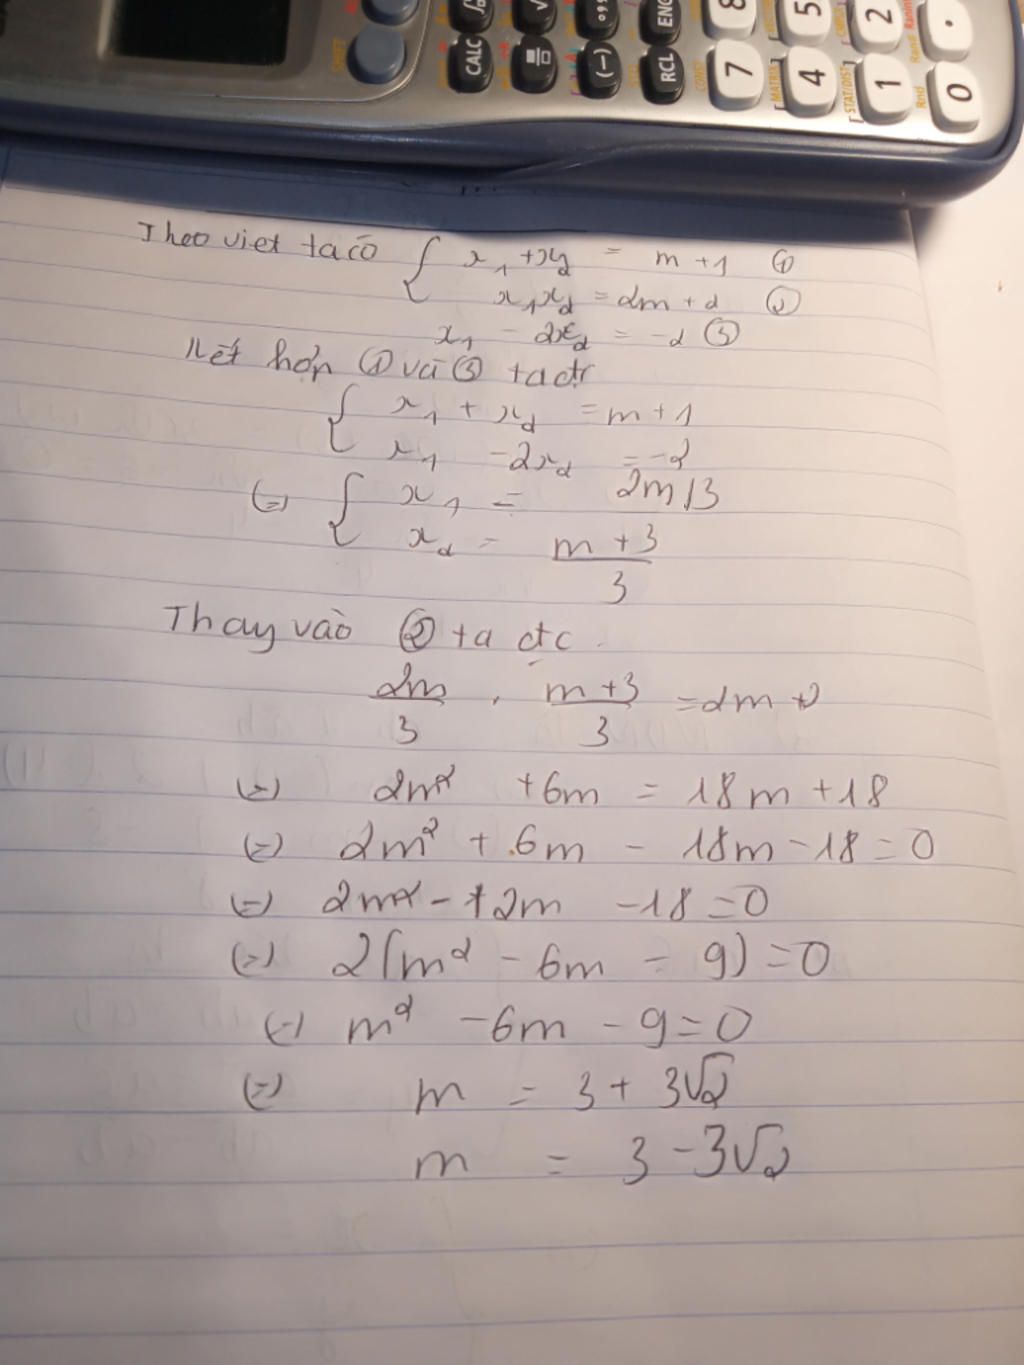 CALC (−) RCL ENG 7 8 4 5 1 2 0 .
MATRIX STAT/DIST Rnd Ran
Theo viet ta có { x₁ + x₂ = m + 1 ①
x₁x₂ = 2m + 2 ②
x₁ - 2x₂ = -2 ③
Kết hợp ① và ③ ta đc
{ x₁ + x₂ = m + 1
x₁ - 2x₂ = -2
(=) { x₁ = 2m/3
x₂ = m + 3 / 3
Thay vào ② ta đc.
2m/3 . m + 3 / 3 = 2m + 2
(=) 2m² + 6m = 18m + 18
(=) 2m² + 6m - 18m - 18 = 0
(=) 2m² - 12m - 18 = 0
(=) 2(m² - 6m - 9) = 0
(=) m² - 6m - 9 = 0
(=) m = 3 + 3√2
m = 3 - 3√2